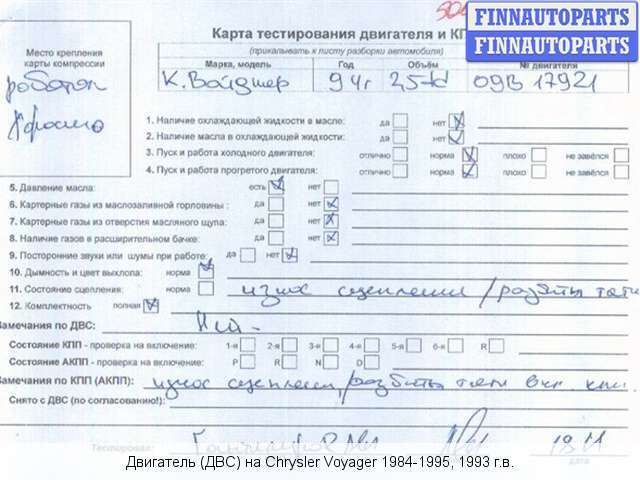 FINNAUTOPARTS
FINNAUTOPARTS
Карта тестирования двигателя и КП
(прикалывать к листу разборки автомобиля)
Место крепления
карты компрессии
работяк
Хорошо
Марка, модель Год Объём № двигателя
К. Вояджер 94г 2,5td 09B 17921
1. Наличие охлаждающей жидкости в масле: да нет
2. Наличие масла в охлаждающей жидкости: да нет
3. Пуск и работа холодного двигателя: отлично норма плохо не завёлся
4. Пуск и работа прогретого двигателя: отлично норма плохо не завёлся
5. Давление масла: есть нет
6. Картерные газы из маслозаливной горловины : да нет
7. Картерные газы из отверстия масляного щупа: да нет
8. Наличие газов в расширительном бачке: да нет
9. Посторонние звуки или шумы при работе: да нет
10. Дымность и цвет выхлопа: норма
11. Состояние сцепления: норма износ сцепления / разбиты тяги
12. Комплектность полная
Замечания по ДВС: Нет -
Состояние КПП - проверка на включение: 1-я 2-я 3-я 4-я 5-я 6-я R
Состояние АКПП - проверка на включение: P R N D
Замечания по КПП (АКПП): износ сцепления, разбиты тяги вкл. кпп.
Снято с ДВС (по согласованию!):
Тестировал: 19.11
дата
Двигатель (ДВС) на Chrysler Voyager 1984-1995, 1993 г.в.